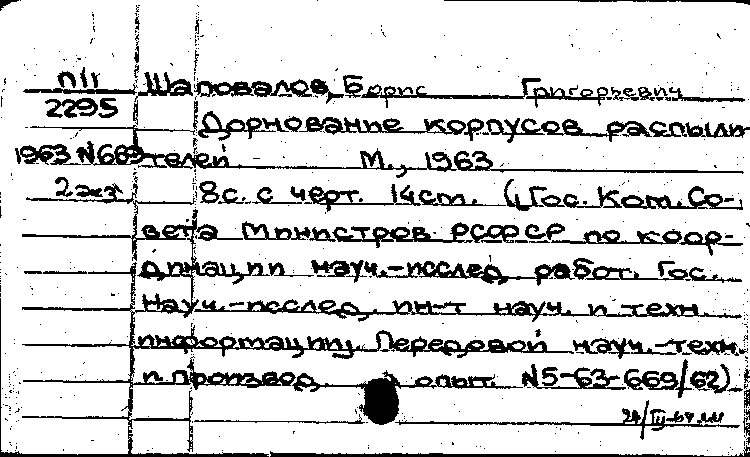 П/I Шаповалов, Борис Григорьевич
2295 Дорнование корпусов распыли-
1963 №669 телей. М., 1963.
2 экз. 8с. с черт. 14cm. (Гос. Ком. Со-
вета Министров РСФСР по коор-
динации науч.-исслед. работ. Гос.
науч.-исслед. ин-т науч. и техн.
информации. Передовой науч.-техн.
и производ. опыт. №5-63-669/62)